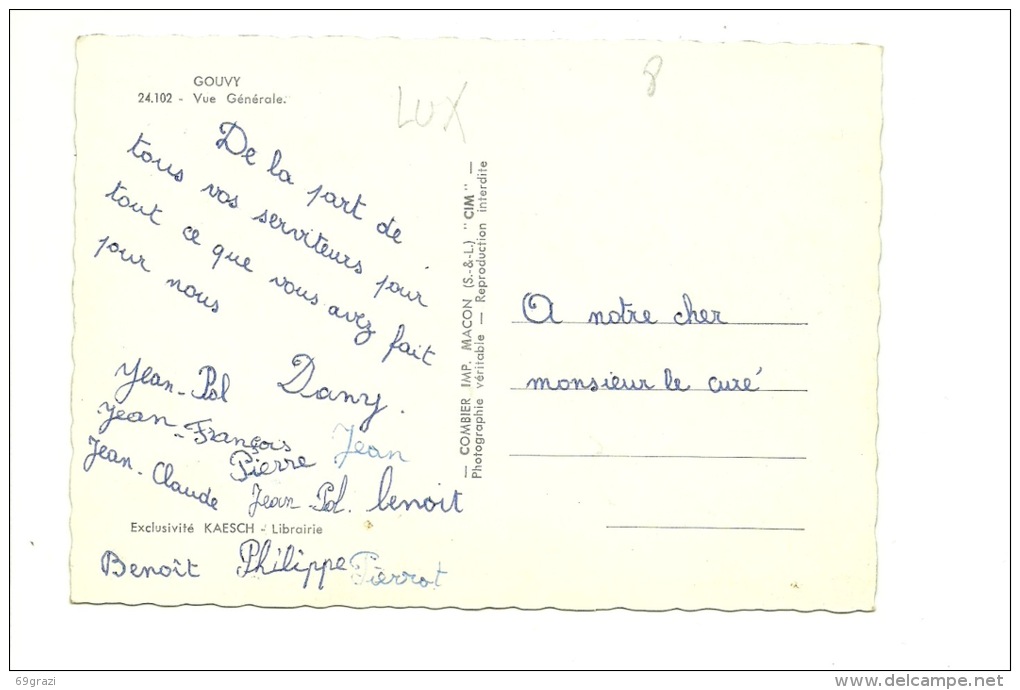 GOUVY
24.102 - Vue Générale.
LUX
8
De la part de
tous vos serviteurs pour
tout ce que vous avez fait
pour nous
Jean-Pol Dany.
Jean-François Jean
Pierre
Jean-Claude Jean-Pol. benoit
Exclusivité KAESCH - Librairie
Benoît Philippe Pierrot
— COMBIER IMP. MACON (S.-&-L.) "CIM" —
Photographie véritable — Reproduction interdite
A notre cher
monsieur le curé
69grazi
www.delcampe.net